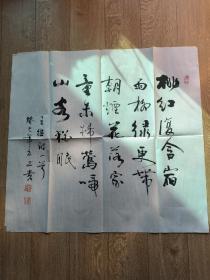 桃红復含宿
雨柳绿更带
朝煙花落家
童未掃鶯啼
山客猶眠
王维诗一首